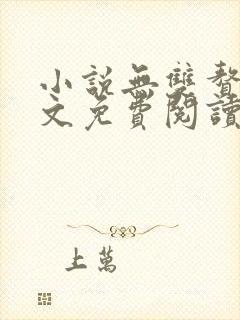 小說無雙贅
文免費閱讀
上萬